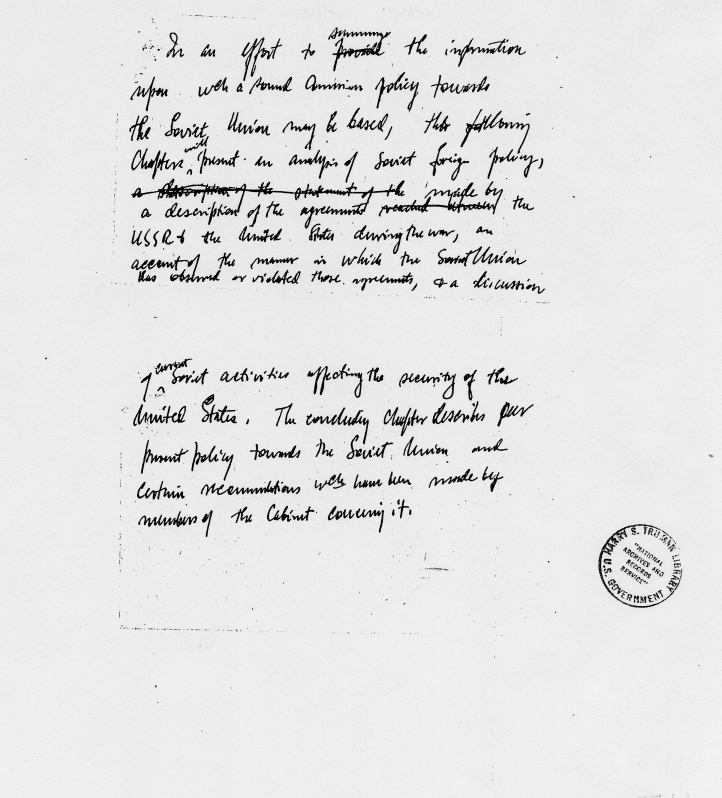 summarize
In an effort to provide the information
upon wch a sound American policy towards
the Soviet Union may be based, the following
will
Chapters present an analysis of Soviet foreign policy,
a description of the statement of the made by
a description of the agreements reached between the
USSR & the United States during the war, an
account of the manner in which the Soviet Union
has observed or violated these agreements, & a discussion
current
of Soviet activities affecting the security of the
United States. The concluding Chapter describes our
present policy towards the Soviet Union and
certain recommendations wch have been made by
members of the Cabinet concerning it.
HARRY S. TRUMAN LIBRARY
"NATIONAL
ARCHIVES AND
RECORDS
SERVICE"
U.S. GOVERNMENT